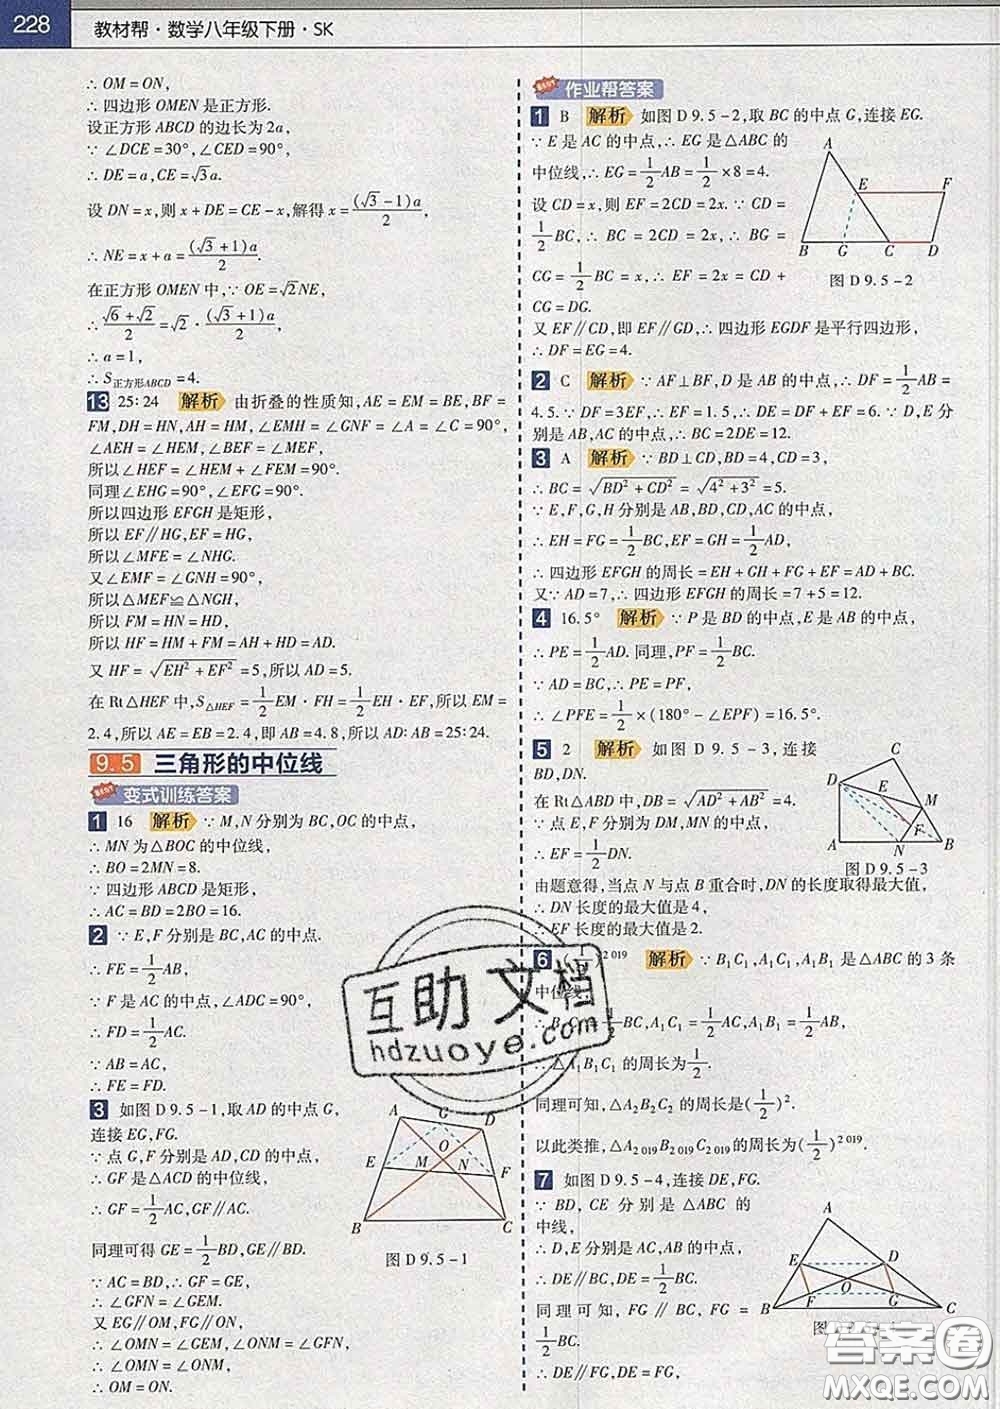 228
教材帮·数学八年级下册·SK
∴ OM = ON,
∴ 四边形 OMEN 是正方形.
设正方形 ABCD 的边长为 2a,
∵ ∠DCE = 30°, ∠CED = 90°,
∴ DE = a, CE = √3a.
设 DN = x, 则 x + DE = CE - x, 解得 x = (√3 - 1)a/2,
∴ NE = x + a = (√3 + 1)a/2.
在正方形 OMEN 中, ∵ OE = √2NE,
∴ (√6 + √2)/2 = √2 · (√3 + 1)a/2,
∴ a = 1,
∴ S正方形ABCD = 4.
13 25∶24 解析 由折叠的性质知, AE = EM = BE, BF =
FM, DH = HN, AH = HM, ∠EMH = ∠GNF = ∠A = ∠C = 90°,
∠AEH = ∠HEM, ∠BEF = ∠MEF,
所以 ∠HEF = ∠HEM + ∠FEM = 90°.
同理 ∠EHG = 90°, ∠EFG = 90°.
所以四边形 EFGH 是矩形,
所以 EF∥HG, EF = HG,
所以 ∠MFE = ∠NHG.
又 ∠EMF = ∠GNH = 90°,
所以 △MEF≌△NGH,
所以 FM = HN = HD,
所以 HF = HM + FM = AH + HD = AD.
又 HF = √(EH² + EF²) = 5, 所以 AD = 5.
在 Rt△HEF 中, S△HEF = 1/2 EM · FH = 1/2 EH · EF, 所以 EM =
2.4, 所以 AE = EB = 2.4, 即 AB = 4.8, 所以 AD∶AB = 25∶24.
9.5 三角形的中位线
变式训练答案
1 16 解析 ∵ M, N 分别为 BC, OC 的中点,
∴ MN 为 △BOC 的中位线,
∴ BO = 2MN = 8.
∵ 四边形 ABCD 是矩形,
∴ AC = BD = 2BO = 16.
2 ∵ E, F 分别是 BC, AC 的中点.
∴ FE = 1/2 AB,
∵ F 是 AC 的中点, ∠ADC = 90°,
∴ FD = 1/2 AC.
∵ AB = AC,
∴ FE = FD.
3 如图 D9.5-1, 取 AD 的中点 G,
连接 EG, FG.
∵ 点 G, F 分别是 AD, CD 的中点,
∴ GF 是 △ACD 的中位线,
∴ GF = 1/2 AC, GF∥AC.
同理可得 GE = 1/2 BD, GE∥BD.
∵ AC = BD, ∴ GF = GE,
∴ ∠GFN = ∠GEM.
又 EG∥OM, FG∥ON,
∴ ∠OMN = ∠GEM, ∠ONM = ∠GFN,
∴ ∠OMN = ∠ONM,
∴ OM = ON.
A G D
O
E M N F
B C
图 D9.5-1
作业帮答案
1 B 解析 如图 D9.5-2, 取 BC 的中点 G, 连接 EG.
∵ E 是 AC 的中点, ∴ EG 是 △ABC 的
中位线, ∴ EG = 1/2 AB = 1/2 × 8 = 4.
设 CD = x, 则 EF = 2CD = 2x. ∵ CD =
1/2 BC, ∴ BC = 2CD = 2x, ∴ BG =
CG = 1/2 BC = x, ∴ EF = 2x = CD +
CG = DG.
又 EF∥CD, 即 EF∥GD, ∴ 四边形 EGDF 是平行四边形,
∴ DF = EG = 4.
A
E F
B G C D
图 D9.5-2
2 C 解析 ∵ AF⊥BF, D 是 AB 的中点, ∴ DF = 1/2 AB =
4.5. ∵ DF = 3EF, ∴ EF = 1.5, ∴ DE = DF + EF = 6. ∵ D, E 分
别是 AB, AC 的中点, ∴ BC = 2DE = 12.
3 A 解析 ∵ BD⊥CD, BD = 4, CD = 3,
∴ BC = √(BD² + CD²) = √(4² + 3²) = 5.
∵ E, F, G, H 分别是 AB, BD, CD, AC 的中点,
∴ EH = FG = 1/2 BC, EF = GH = 1/2 AD,
∴ 四边形 EFGH 的周长 = EH + GH + FG + EF = AD + BC.
又 ∵ AD = 7, ∴ 四边形 EFGH 的周长 = 7 + 5 = 12.
4 16.5° 解析 ∵ P 是 BD 的中点, E 是 AB 的中点,
∴ PE = 1/2 AD. 同理, PF = 1/2 BC.
∵ AD = BC, ∴ PE = PF,
∴ ∠PFE = 1/2 × (180° - ∠EPF) = 16.5°.
5 2 解析 如图 D9.5-3, 连接
BD, DN.
在 Rt△ABD 中, DB = √(AD² + AB²) = 4.
∵ 点 E, F 分别为 DM, MN 的中点,
∴ EF = 1/2 DN.
由题意得, 当点 N 与点 B 重合时, DN 的长度取得最大值,
∴ DN 长度的最大值是 4,
∴ EF 长度的最大值是 2.
C
D E M
F
A N B
图 D9.5-3
6 (1/2)^2 019 解析 ∵ B₁C₁, A₁C₁, A₁B₁ 是 △ABC 的 3 条
中位线,
∴ B₁C₁ = 1/2 BC, A₁C₁ = 1/2 AC, A₁B₁ = 1/2 AB,
∴ △A₁B₁C₁ 的周长为 1/2.
同理可知, △A₂B₂C₂ 的周长是 (1/2)².
以此类推, △A₂₀₁₉B₂₀₁₉C₂₀₁₉ 的周长为 (1/2)^2 019.
7 如图 D9.5-4, 连接 DE, FG.
∵ BD, CE 分别是 △ABC 的
中线,
∴ D, E 分别是 AC, AB 的中点,
∴ DE∥BC, DE = 1/2 BC.
同理可知, FG∥BC, FG =
1/2 BC.
∴ DE∥FG, DE = FG,
A
E D
O
F G
B C
互助文档
hdzuoye.com
答案圈
MXQE.COM